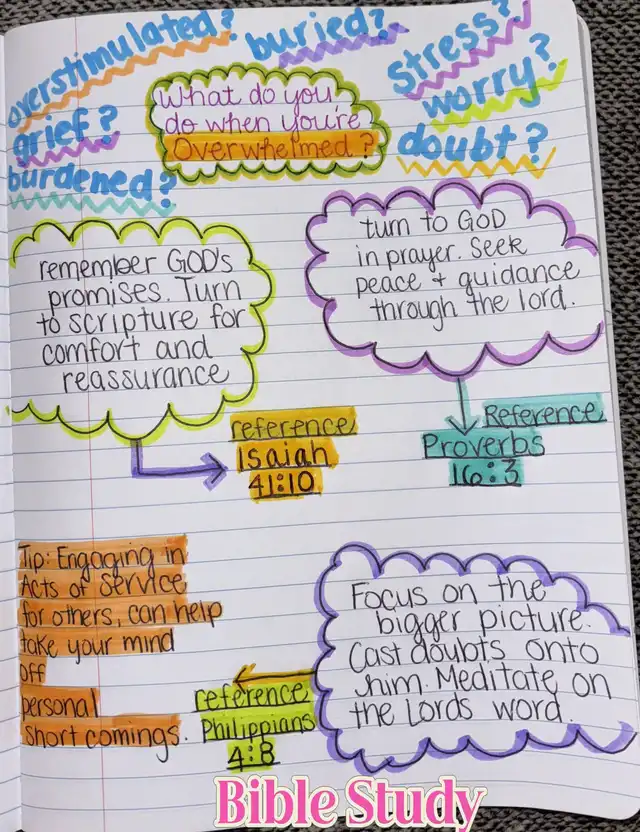 overstimulated?
buried?
stress?
worry?
grief?
doubt?
burdened?
What do you
do when you're
Overwhelmed?
remember GOD's
promises. Turn
to scripture for
comfort and
reassurance
turn to GOD
in prayer. Seek
peace + guidance
through the lord.
reference
Isaiah
41:10
Reference
Proverbs
16:3
Tip: Engaging in
Acts of Service
for others, can help
take your mind
off
personal
short comings.
Focus on the
bigger picture.
Cast doubts onto
him. Meditate on
the Lords word.
reference
Philippians
4:8
Bible Study